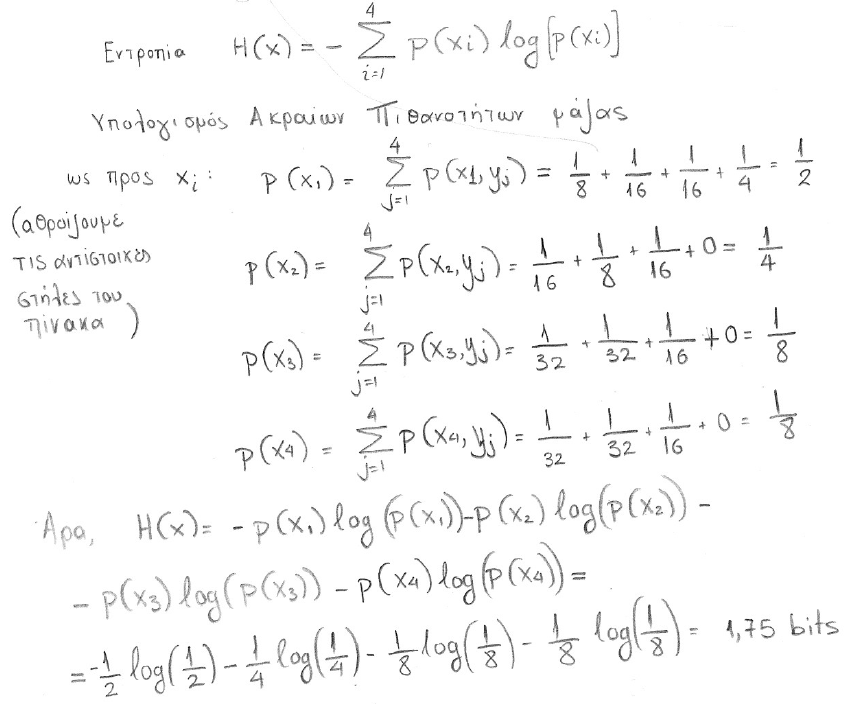 Εντροπία H(x) = - Σ_{i=1}^{4} p(xi) log[p(xi)]
Υπολογισμός Ακραίων Πιθανοτήτων μάζας
ως προς xi: p(x1) = Σ_{j=1}^{4} p(x1, yj) = 1/8 + 1/16 + 1/16 + 1/4 = 1/2
(αθροίζουμε
τις αντίστοιχες
στήλες του
πίνακα)
p(x2) = Σ_{j=1}^{4} p(x2, yj) = 1/16 + 1/8 + 1/16 + 0 = 1/4
p(x3) = Σ_{j=1}^{4} p(x3, yj) = 1/32 + 1/32 + 1/16 + 0 = 1/8
p(x4) = Σ_{j=1}^{4} p(x4, yj) = 1/32 + 1/32 + 1/16 + 0 = 1/8
Άρα, H(x) = - p(x1) log(p(x1)) - p(x2) log(p(x2)) -
- p(x3) log(p(x3)) - p(x4) log(p(x4)) =
= -1/2 log(1/2) - 1/4 log(1/4) - 1/8 log(1/8) - 1/8 log(1/8) = 1,75 bits